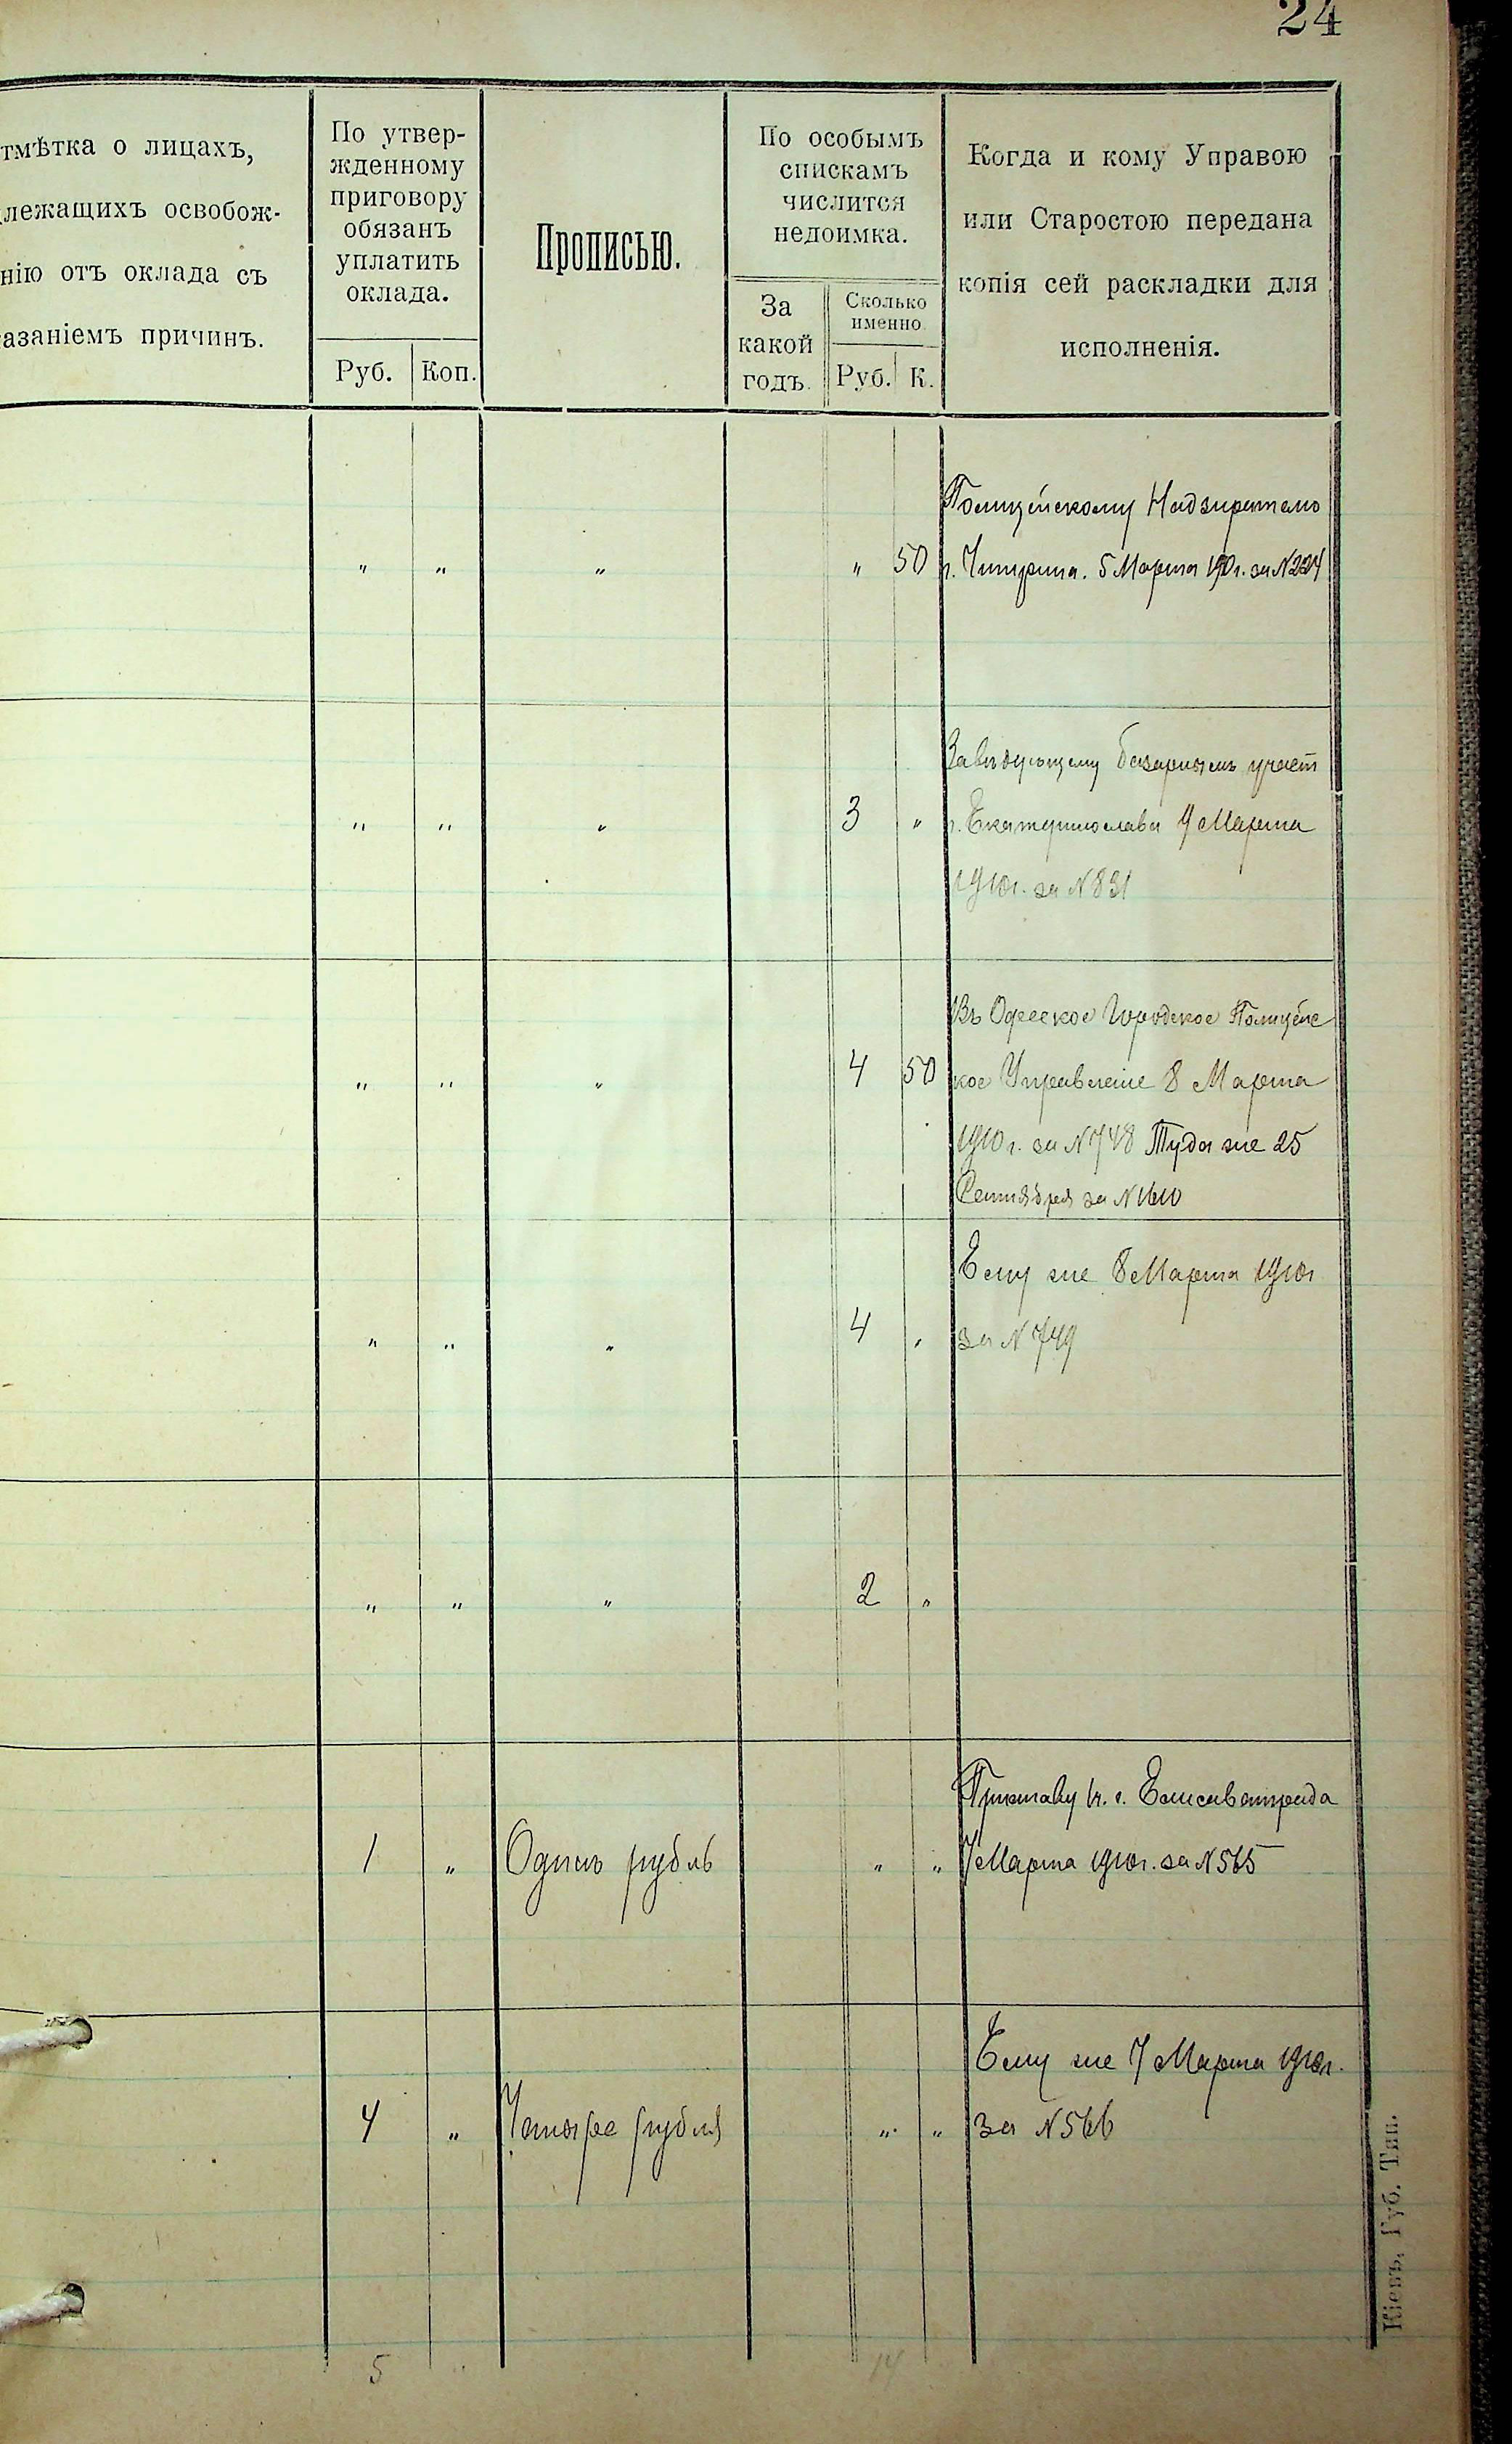 24
тмѣтка о лицахъ,
лежащихъ освобож-
нію отъ оклада съ
азаніемъ причинъ.
По утвер-
жденному
приговору
обязанъ
уплатить
оклада.
Руб. Коп.
Прописью.
По особымъ
спискамъ
числится
недоимка.
За
какой
годъ.
Сколько
именно
Руб. К.
Когда и кому Управою
или Старостою передана
копія сей раскладки для
исполненія.
Полицейскому Надзирателю
" " " " 50 г. Чигирина. 5 Марта 1910г. за N224
Завѣдующему базарнымъ участ
" " " 3 " г. Екатеринослава 9 Марта
1910г. за N831
Въ Одесское Городское Полицейс
" " " 4 50 кое Управленіе 8 Марта
1910г. за N748 Туда же 25
Сентября за N1610
Ему же 8 Марта 1910г
" " " 4 " за N749
" " " 2 "
Приставу г. Елисаветграда
1 " Одинъ рубль " " 7 Марта 1910г. за N565
Ему же 7 Марта 1910г.
4 " Четыре рубля " " за N566
5 " 14
Кіевъ, Губ. Тип.